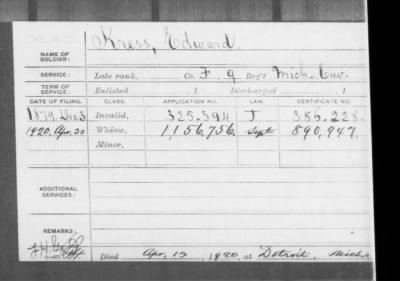 Kress, Edward.
NAME OF SOLDIER:
SERVICE: Late rank, Co. F, 9 Reg't Mich. Cav.
TERM OF SERVICE: Enlisted , 1 Discharged , 1
DATE OF FILING. CLASS. APPLICATION NO. LAW. CERTIFICATE NO.
1879. Dec 3 Invalid, 325.394 J 386.228.
1920, Apr, 20 Widow, 1,156,756. Sept 890,947.
Minor,
ADDITIONAL SERVICES:
REMARKS:
Died Apr, 12, 1920, at Detroit, Mich.